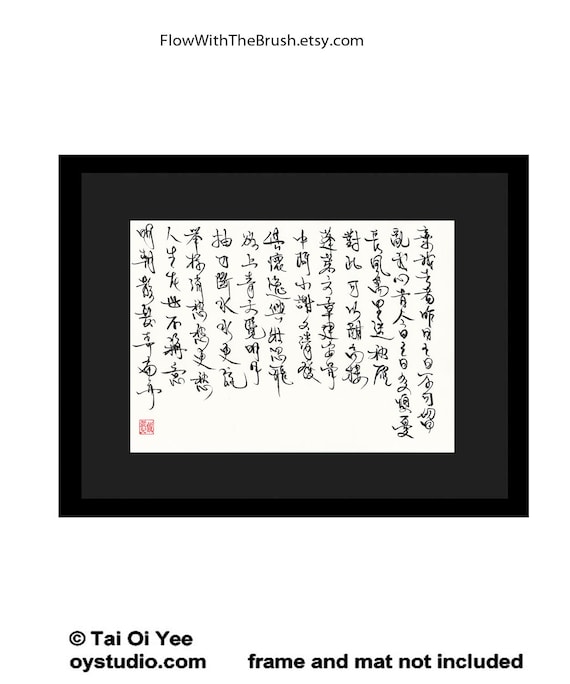 FlowWithTheBrush.etsy.com
棄我去者昨日之日不可留
亂我心者今日之日多煩憂
長風萬里送秋雁
對此可以酣高樓
蓬萊文章建安骨
中間小謝又清發
俱懷逸興壯思飛
欲上青天覽明月
抽刀斷水水更流
舉杯消愁愁更愁
人生在世不稱意
明朝散髮弄扁舟
© Tai Oi Yee
oystudio.com frame and mat not included